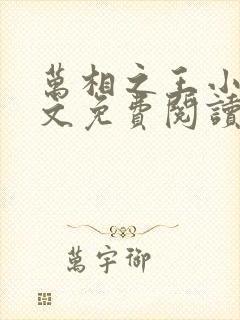 萬相之王小
文免費閱讀
萬宇御